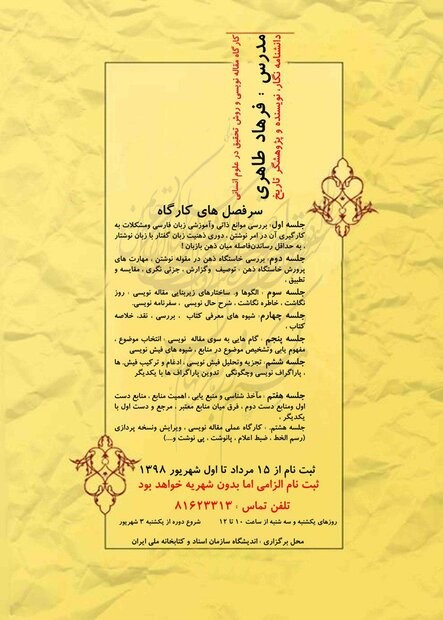 کارگاه مقاله نویسی و روش تحقیق در علوم انسانی
مدرس : فرهاد طاهری
دانشنامه نگار، نویسنده و پژوهشگر تاریخ
سرفصل های کارگاه
جلسه اول: بررسی موانع ذاتی وآموزشی زبان فارسی ومشکلات به
کارگیری آن در امر نوشتن ، دوری ذهنیت زبان گفتار با زبان نوشتار
، به حداقل رساندن‌فاصله میان ذهن بازبان !
جلسه دوم: بررسی خاستگاه ذهن در مقوله نوشتن ، مهارت های
پرورش خاستگاه ذهن ، توصیف وگزارش ، جزئی نگری ، مقایسه و
تطبیق ,
جلسه سوم : الگوها و ساختارهای زیربنایی مقاله نویسی ، روز
نگاشت ، خاطره نگاشت ، شرح حال نویسی ، سفرنامه نویسی.
جلسه چهارم: شیوه های معرفی کتاب ، بررسی ، نقد، خلاصه
کتاب ,
جلسه پنجم : گام هایی به سوی مقاله نویسی : انتخاب موضوع ،
مفهوم یابی وتشخیص موضوع در منابع ، شیوه های فیش نویسی
جلسه ششم : تجزیه وتحلیل فیش نویسی ، ادغام و ترکیب فیش ها
، پاراگراف نویسی وچگونگی تدوین پاراگراف ها با یکدیگر
جلسه هفتم : مأخذ شناسی و منبع یابی ، اهمیت منابع ، منابع دست
اول ومنابع دست دوم ، فرق میان منابع معتبر ، مرجع و دست اول با
یکدیگر
جلسه هشتم. : کارگاه عملی مقاله نویسی ، ویرایش ونسخه پردازی
(رسم الخط ، ضبط اعلام ، پانوشت ، پی نوشت و...)
ثبت نام از ۱۵ مرداد تا اول شهریور ۱۳۹۸
ثبت نام الزامی اما بدون شهریه خواهد بود
تلفن تماس : ۸۱۶۲۳۳۱۳
روزهای یکشنبه و سه شنبه از ساعت ۱۰ تا ۱۲ شروع دوره از یکشنبه ۳ شهریور
محل برگزاری : اندیشگاه سازمان اسناد و کتابخانه ملی ایران